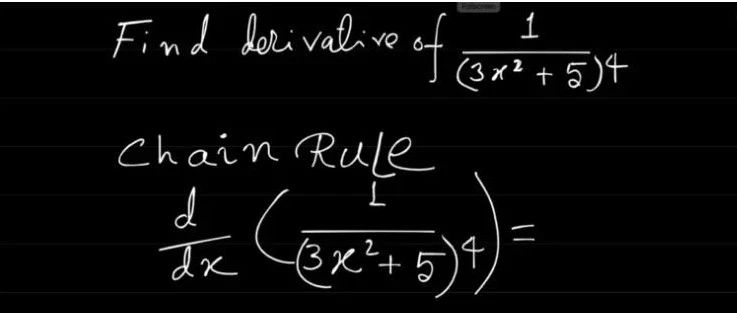 Find derivative of 1/(3x² + 5)4
Chain Rule
d/dx (1/(3x² + 5)4) =